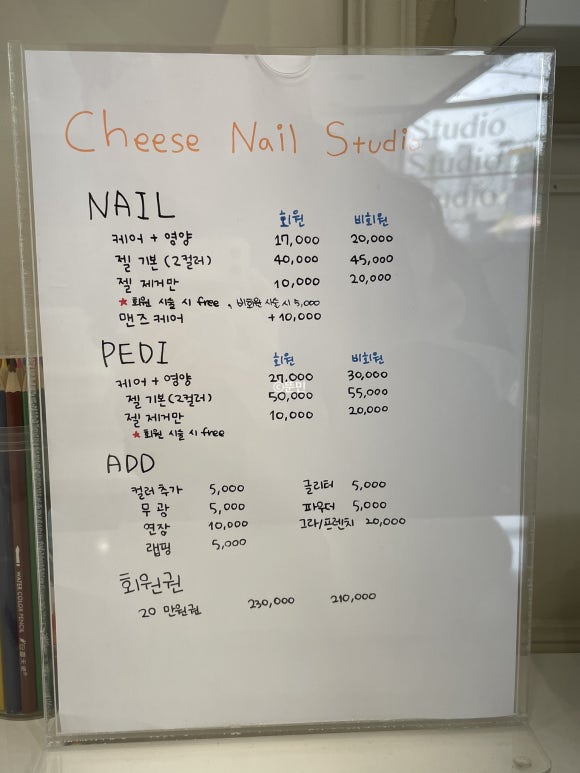 Cheese Nail Studio
Studio
Studio
Studio
NAIL 회원 비회원
케어 + 영양 17,000 20,000
젤 기본 (2컬러) 40,000 45,000
젤 제거만 10,000 20,000
★ 회원 시술 시 free , 비회원 시술 시 5,000
맨즈 케어 + 10,000
PEDI 회원 비회원
케어 + 영양 27,000 30,000
젤 기본 (2컬러) 50,000 55,000
젤 제거만 10,000 20,000
★ 회원 시술 시 free
ADD
컬러 추가 5,000 글리터 5,000
무광 5,000 파우더 5,000
연장 10,000 그라/프렌치 20,000
랩핑 5,000
회원권
20 만원권 230,000 210,000
WATER COLOR PENCIL